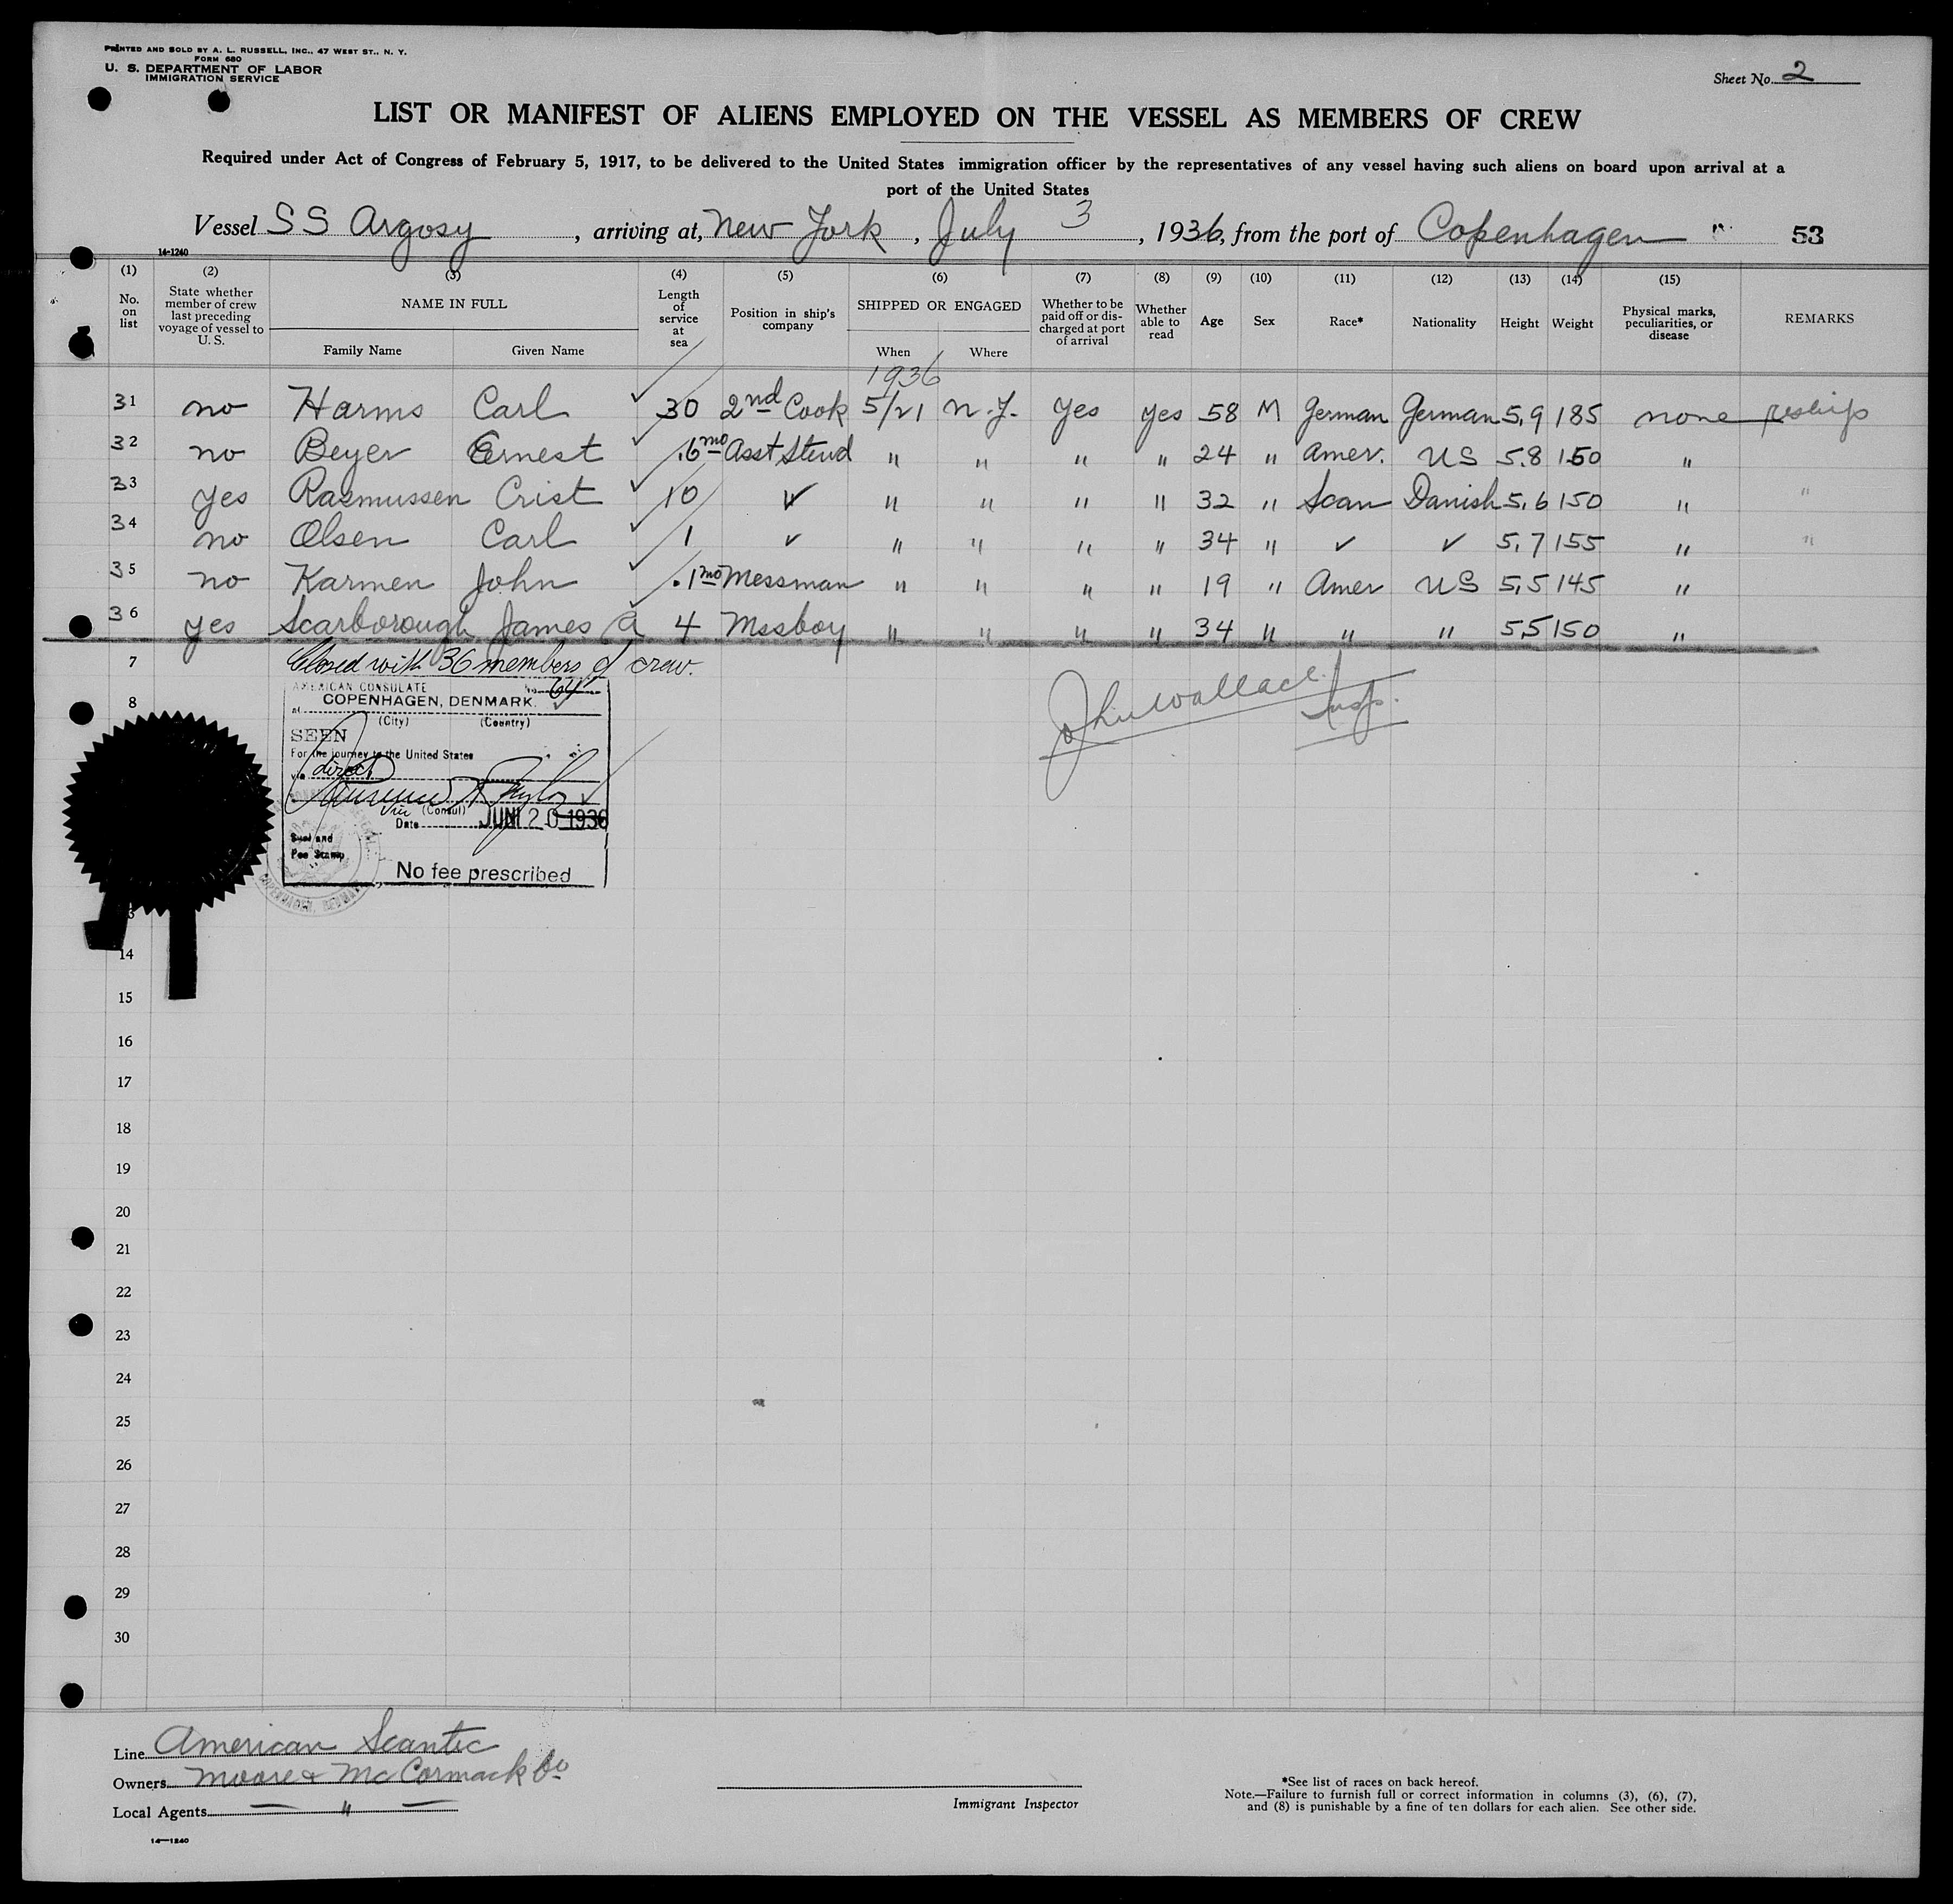 PRINTED AND SOLD BY A. L. RUSSELL, INC., 47 WEST ST., N. Y.
FORM 680
U. S. DEPARTMENT OF LABOR
IMMIGRATION SERVICE
Sheet No. 2
LIST OR MANIFEST OF ALIENS EMPLOYED ON THE VESSEL AS MEMBERS OF CREW
Required under Act of Congress of February 5, 1917, to be delivered to the United States immigration officer by the representatives of any vessel having such aliens on board upon arrival at a
port of the United States
Vessel SS Argosy, arriving at, New York, July 3, 1936, from the port of Copenhagen 53
14-1240
(1) (2) (3) (4) (5) (6) (7) (8) (9) (10) (11) (12) (13) (14) (15)
No. on list
State whether member of crew last preceding voyage of vessel to U. S.
NAME IN FULL
Family Name Given Name
Length of service at sea
Position in ship's company
SHIPPED OR ENGAGED
When Where
Whether to be paid off or discharged at port of arrival
Whether able to read
Age
Sex
Race*
Nationality
Height
Weight
Physical marks, peculiarities, or disease
REMARKS
1936
31 no Harms Carl 30 2nd Cook 5/21 N.Y. Yes Yes 58 M German German 5,9 185 none reships
32 no Beyer Ernest .6 mo Asst Stewd " " " " 24 " Amer. US 5.8 150 "
33 yes Rasmussen Crist 10 ✓ " " " " 32 " Scan Danish 5,6 150 " "
34 no Olsen Carl 1 ✓ " " " " 34 " ✓ ✓ 5,7 155 " "
35 no Karmen John .1 mo Messman " " " " 19 " Amer US 5,5 145 "
36 yes Scarborough James A 4 Mssboy " " " " 34 " " " 5,5 150 "
7 Closed with 36 members of crew.
8
AMERICAN CONSULATE No. 64
at COPENHAGEN, DENMARK.
(City) (Country)
SEEN
For the journey to the United States
via direct
Vice (Consul)
Date JUNI 20 1936
Seal and
Fee Stamp
No fee prescribed
John Wallace
Insp.
3
14
15
16
17
18
19
20
21
22
23
24
25
26
27
28
29
30
Line American Scantic
Owners Moore & McCormack Co
Local Agents — " —
14—1240
Immigrant Inspector
*See list of races on back hereof.
Note.—Failure to furnish full or correct information in columns (3), (6), (7),
and (8) is punishable by a fine of ten dollars for each alien. See other side.